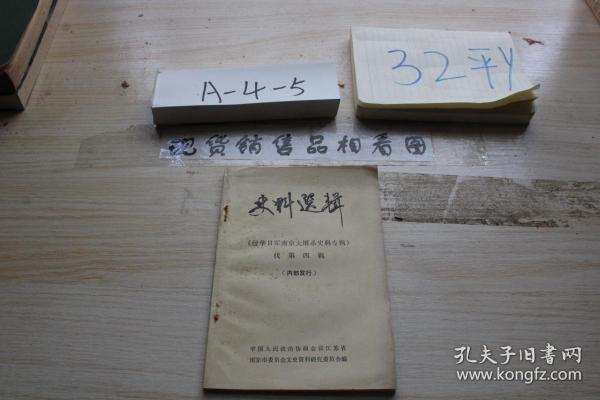 A-4-5
32平Y
现货销售品相看图
史料选辑
《侵华日军南京大屠杀史料专辑》
代第四辑
(内部发行)
中国人民政治协商会议江苏省
南京市委员会文史资料研究委员会编
孔夫子旧书网
www.kongfz.com